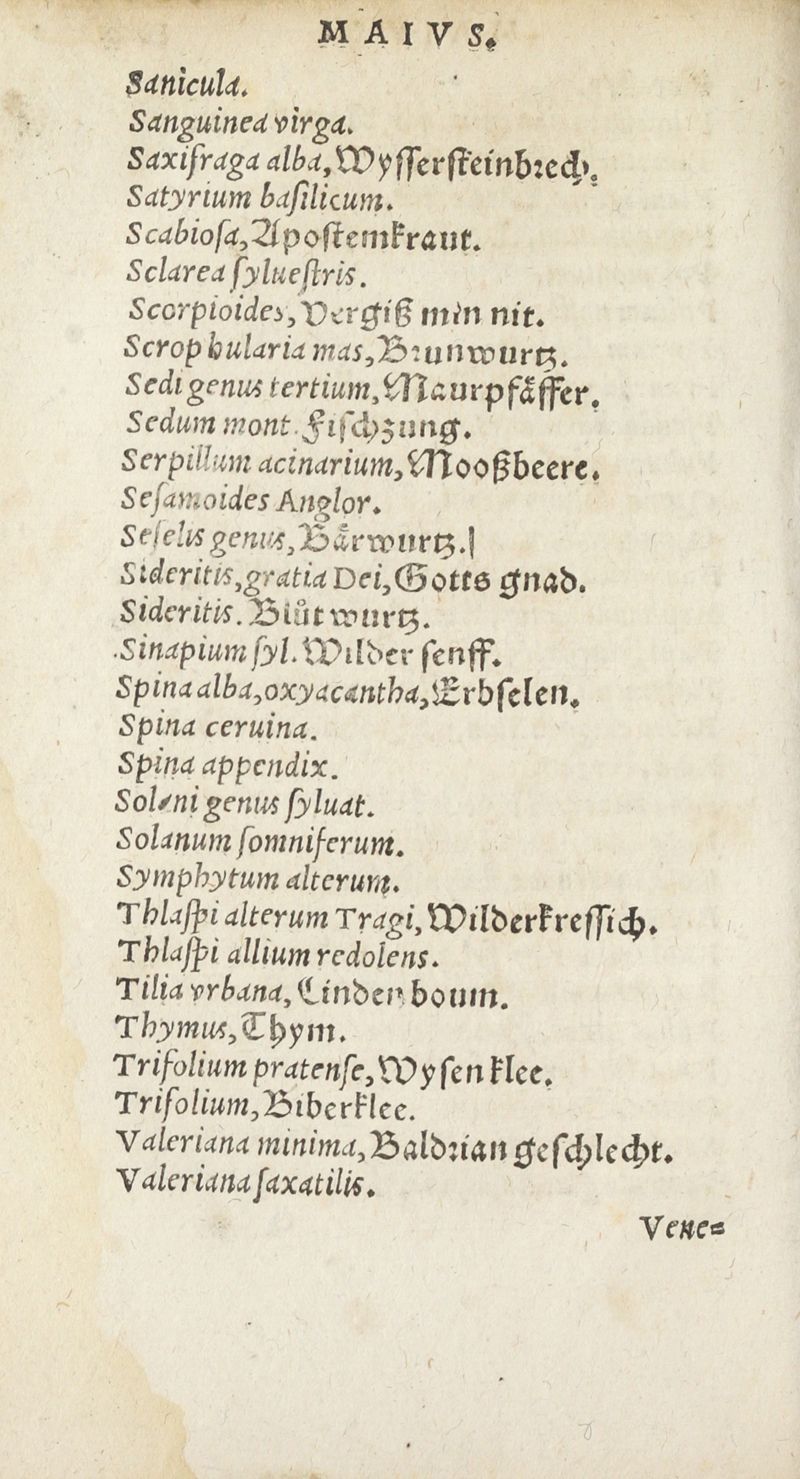 MAIVS.
Sanicula.
Sanguinea virga.
Saxifraga alba, Wyſſerſteinbrech.
Satyrium baſilicum.
Scabioſa, Apoſtemkraut.
Sclarea ſylueſtris.
Scorpioides, Vergiß min nit.
Scrophularia mas, Brunwurtz.
Sedi genus tertium, Maurpfäffer.
Sedum mont. Fiſchzung.
Serpillum acinarium, Mooßbeere.
Seſamoides Anglor.
Seſelis genus, Bärwurtz.
Sideritis, gratia Dei, Gotts gnad.
Sideritis. Blůtwurtz.
Sinapium ſyl. Wilder ſenff.
Spina alba, oxyacantha, Erbſelen.
Spina ceruina.
Spina appendix.
Solani genus ſyluat.
Solanum ſomniferum.
Symphytum alterum.
Thlaſpi alterum Tragi, Wilderkreſſich.
Thlaſpi allium redolens.
Tilia vrbana, Lindenboum.
Thymus, Thym.
Trifolium pratenſe, Wyſenklee.
Trifolium, Biberklee.
Valeriana minima, Baldrian geſchlecht.
Valeriana ſaxatilis.
Vene-